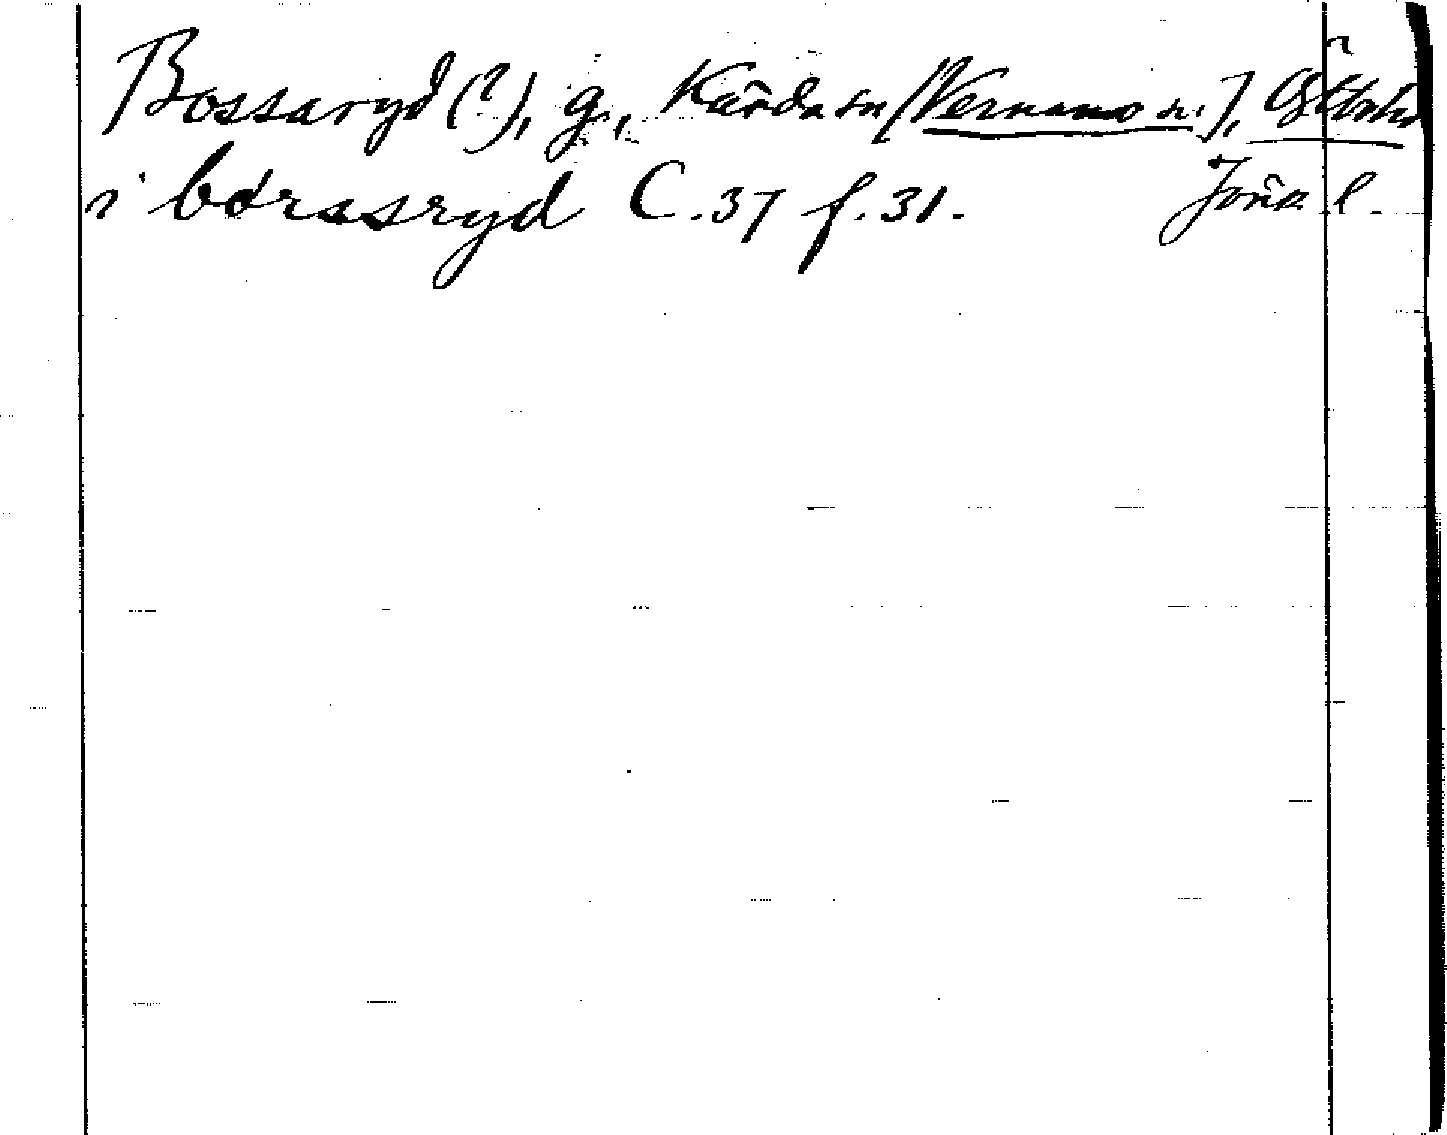 Bossaryd (?), g., Kärda sn (Värnamo sn), Östbo hd
i børsasryd C. 37 f. 31. Jönk. l.